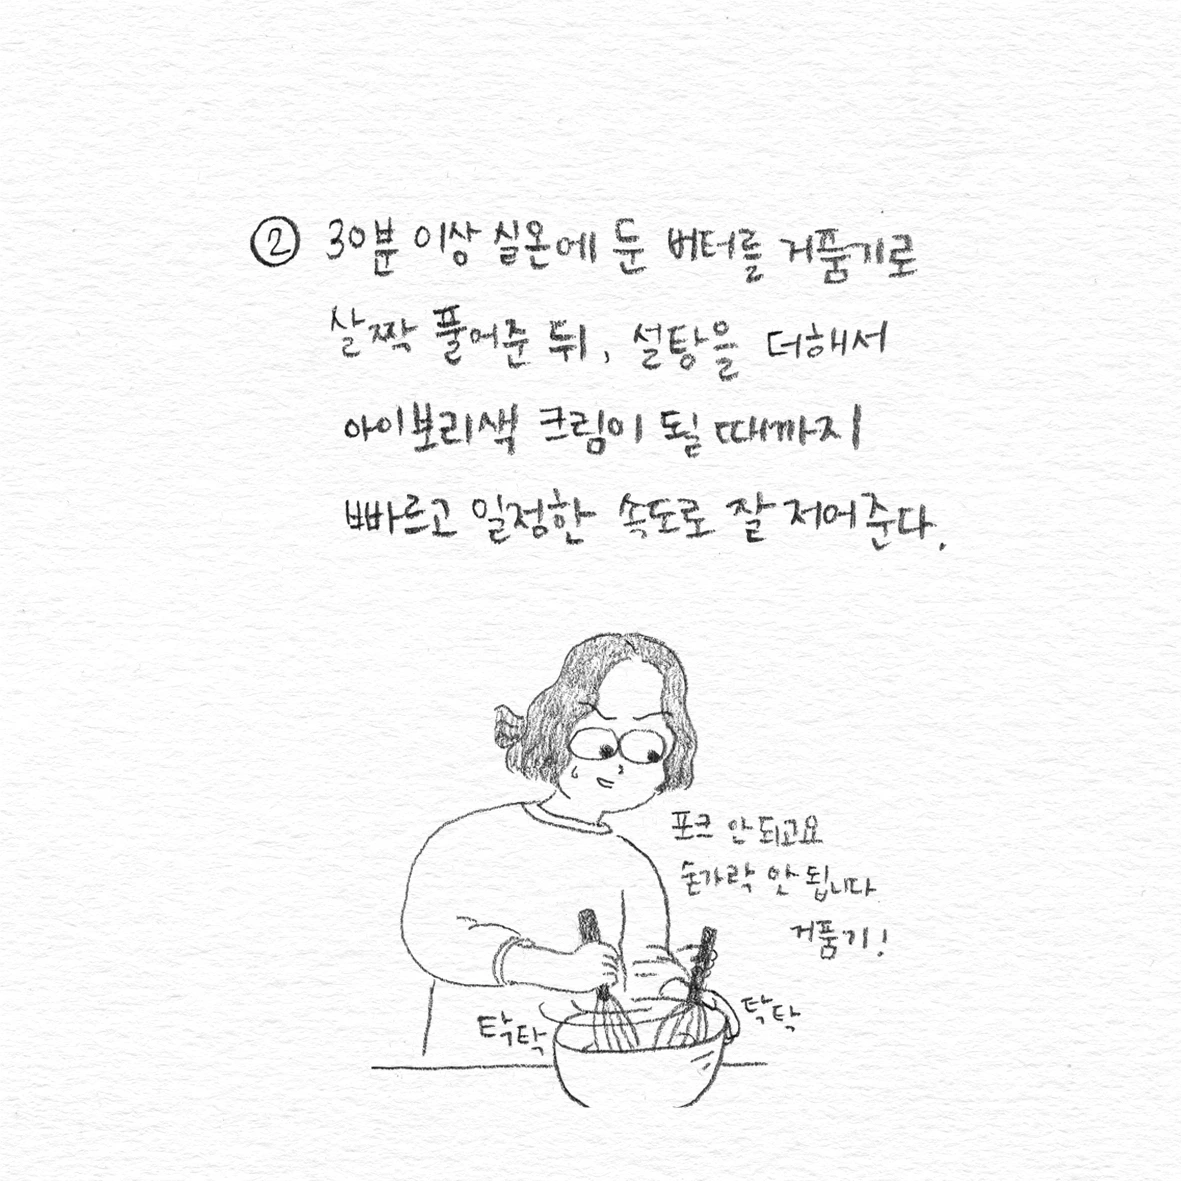 ② 30분 이상 실온에 둔 버터를 거품기로
살짝 풀어준 뒤, 설탕을 더해서
아이보리색 크림이 될 때까지
빠르고 일정한 속도로 잘 저어준다.
포크 안 되고요
숟가락 안 됩니다
거품기!
탁탁
탁탁